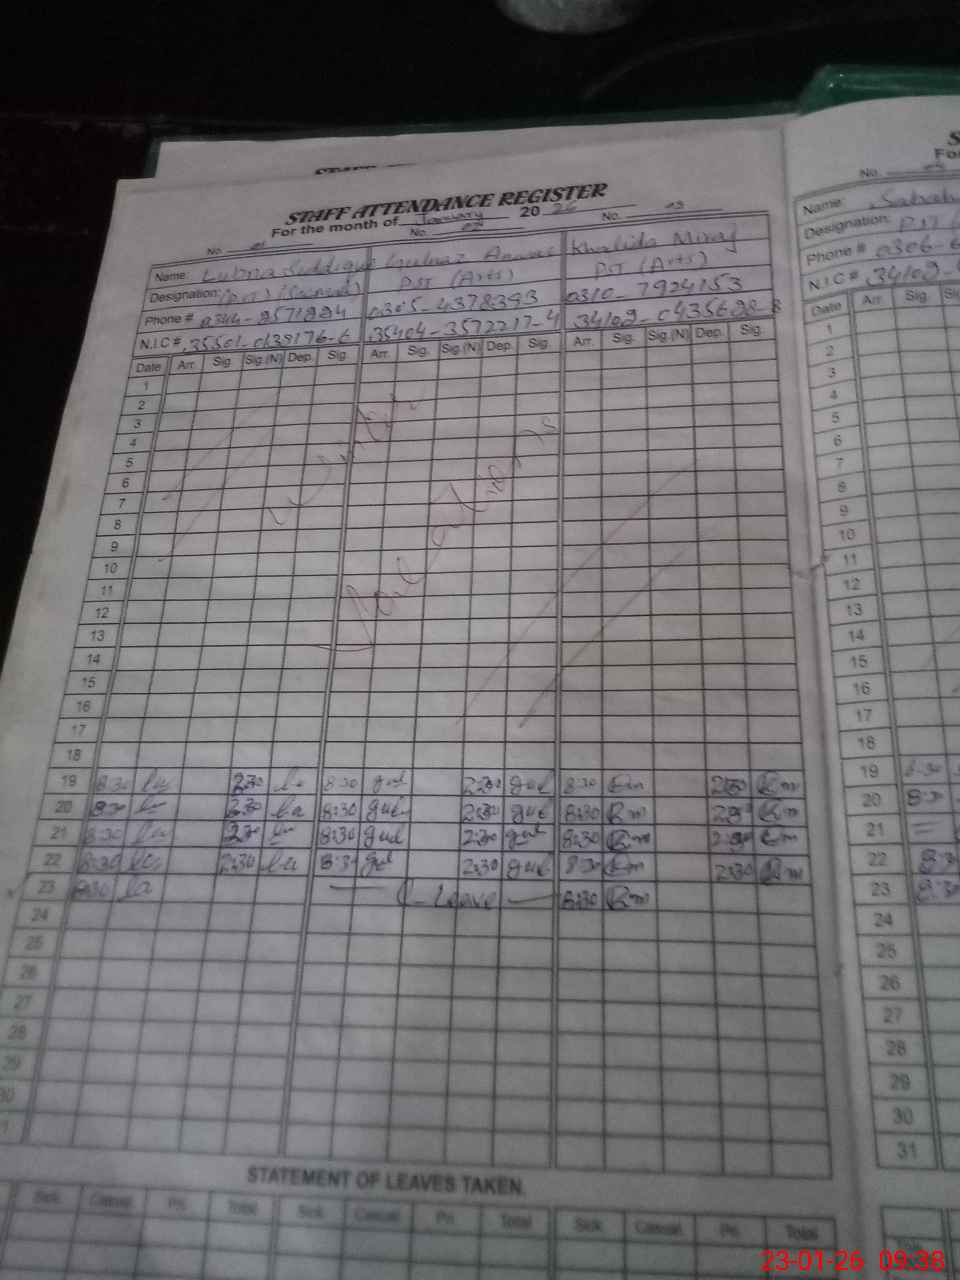 STAFF ATTENDANCE REGISTER
For the month of January 2026
No. 01 No. 02 No. 03
Name: Lubna Siddique Gulnaz Khalida Miraj
Designation: (PST) PST (Arts) PST (Arts)
Phone # 0305-4378393 0310-7924153
N.I.C #
Date Arr. Sig. Sig.(N) Dep. Sig. Arr. Sig. Sig.(N) Dep. Sig. Arr. Sig. Sig.(N) Dep. Sig.
1
2
3
4
5
6
7
8
9
10
11
12
13
14
15
16
17
18
Winter
Vacations
19 8:30 la 2:30 la 8:30 gul 2:30 gul 8:30 Km 2:30 Km
20 8:30 la 2:30 la 8:30 gul 2:30 gul 8:30 Km 2:30 Km
21 8:30 la 2:30 la 8:30 gul 2:30 gul 8:30 Km 2:30 Km
22 8:30 la 2:30 la 8:30 gul 2:30 gul 8:30 Km 2:30 Km
23 8:30 la Leave 8:30 Km
24
25
26
27
28
29
30
STATEMENT OF LEAVES TAKEN
Sick Casual Pri. Total Sick Casual Pri. Total Sick Casual Pri. Total
No.
Name:
Designation: PST
Phone # 0306-6
N.I.C # 34102-
Date Arr. Sig.
1
2
3
4
5
6
7
8
9
10
11
12
13
14
15
16
17
18
19 8:30
20 8:30
21
22 8:3
23 8:30
24
25
26
27
28
29
30
31
23-01-26 09:38